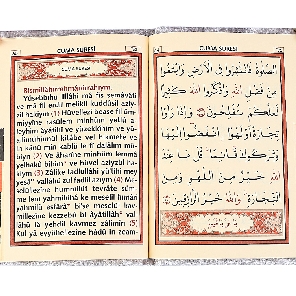 CUMA SURESİ
CUMA SURESİ
Bismillâhirrahmânirrahıym.
Yüsebbihu lillâhi mâ fis semâvâti
ve mâ fil ardıl melikil kuddûsil aziy-
zil hakiym (1) Hüvellezî bease fil üm-
miyyîne rasûlen minhüm yetlû a-
leyhim âyâtihî ve yüzekkîhim ve yü-
allimühümül kitâbe vel
kânû min kablü le fî dalâlin mü-
biyn (2) Ve âharîne minhüm lemmâ
yelhakû bihim ve hüvel aziyzül ha-
kiym (3) Zâlike fadlullâhi yü'tîhi mey
yeşâ' vallâhü zul fadlil azıym (4) Me-
selüllezîne hummilüt tevrâte süm-
me lem yahmilûhâ ke meselil hımâri
yahmilü esfârâ bi'se meselül kav-
millezîne kezzebû bi âyâtillâh val-
lâhü lâ yehdil kavmez zâlimîn (5)
Kul yâ eyyühellezîne hâdû in zeam-
CUMA SURESİ
الصَّلٰوةُ فَانْتَشِرُوا فِي الْاَرْضِ وَابْتَغُوا
مِنْ فَضْلِ اللّٰهِ وَاذْكُرُوا اللّٰهَ كَثِيرًا
لَعَلَّكُمْ تُفْلِحُونَ وَاِذَا رَاَوْا
تِجَارَةً اَوْ لَهْوًا انْفَضُّوا اِلَيْهَا
وَتَرَكُوكَ قَائِمًا قُلْ مَا عِنْدَ
اللّٰهِ خَيْرٌ مِنَ اللَّهْوِ وَمِنَ
التِّجَارَةِ وَاللّٰهُ خَيْرُ الرَّازِقِينَ